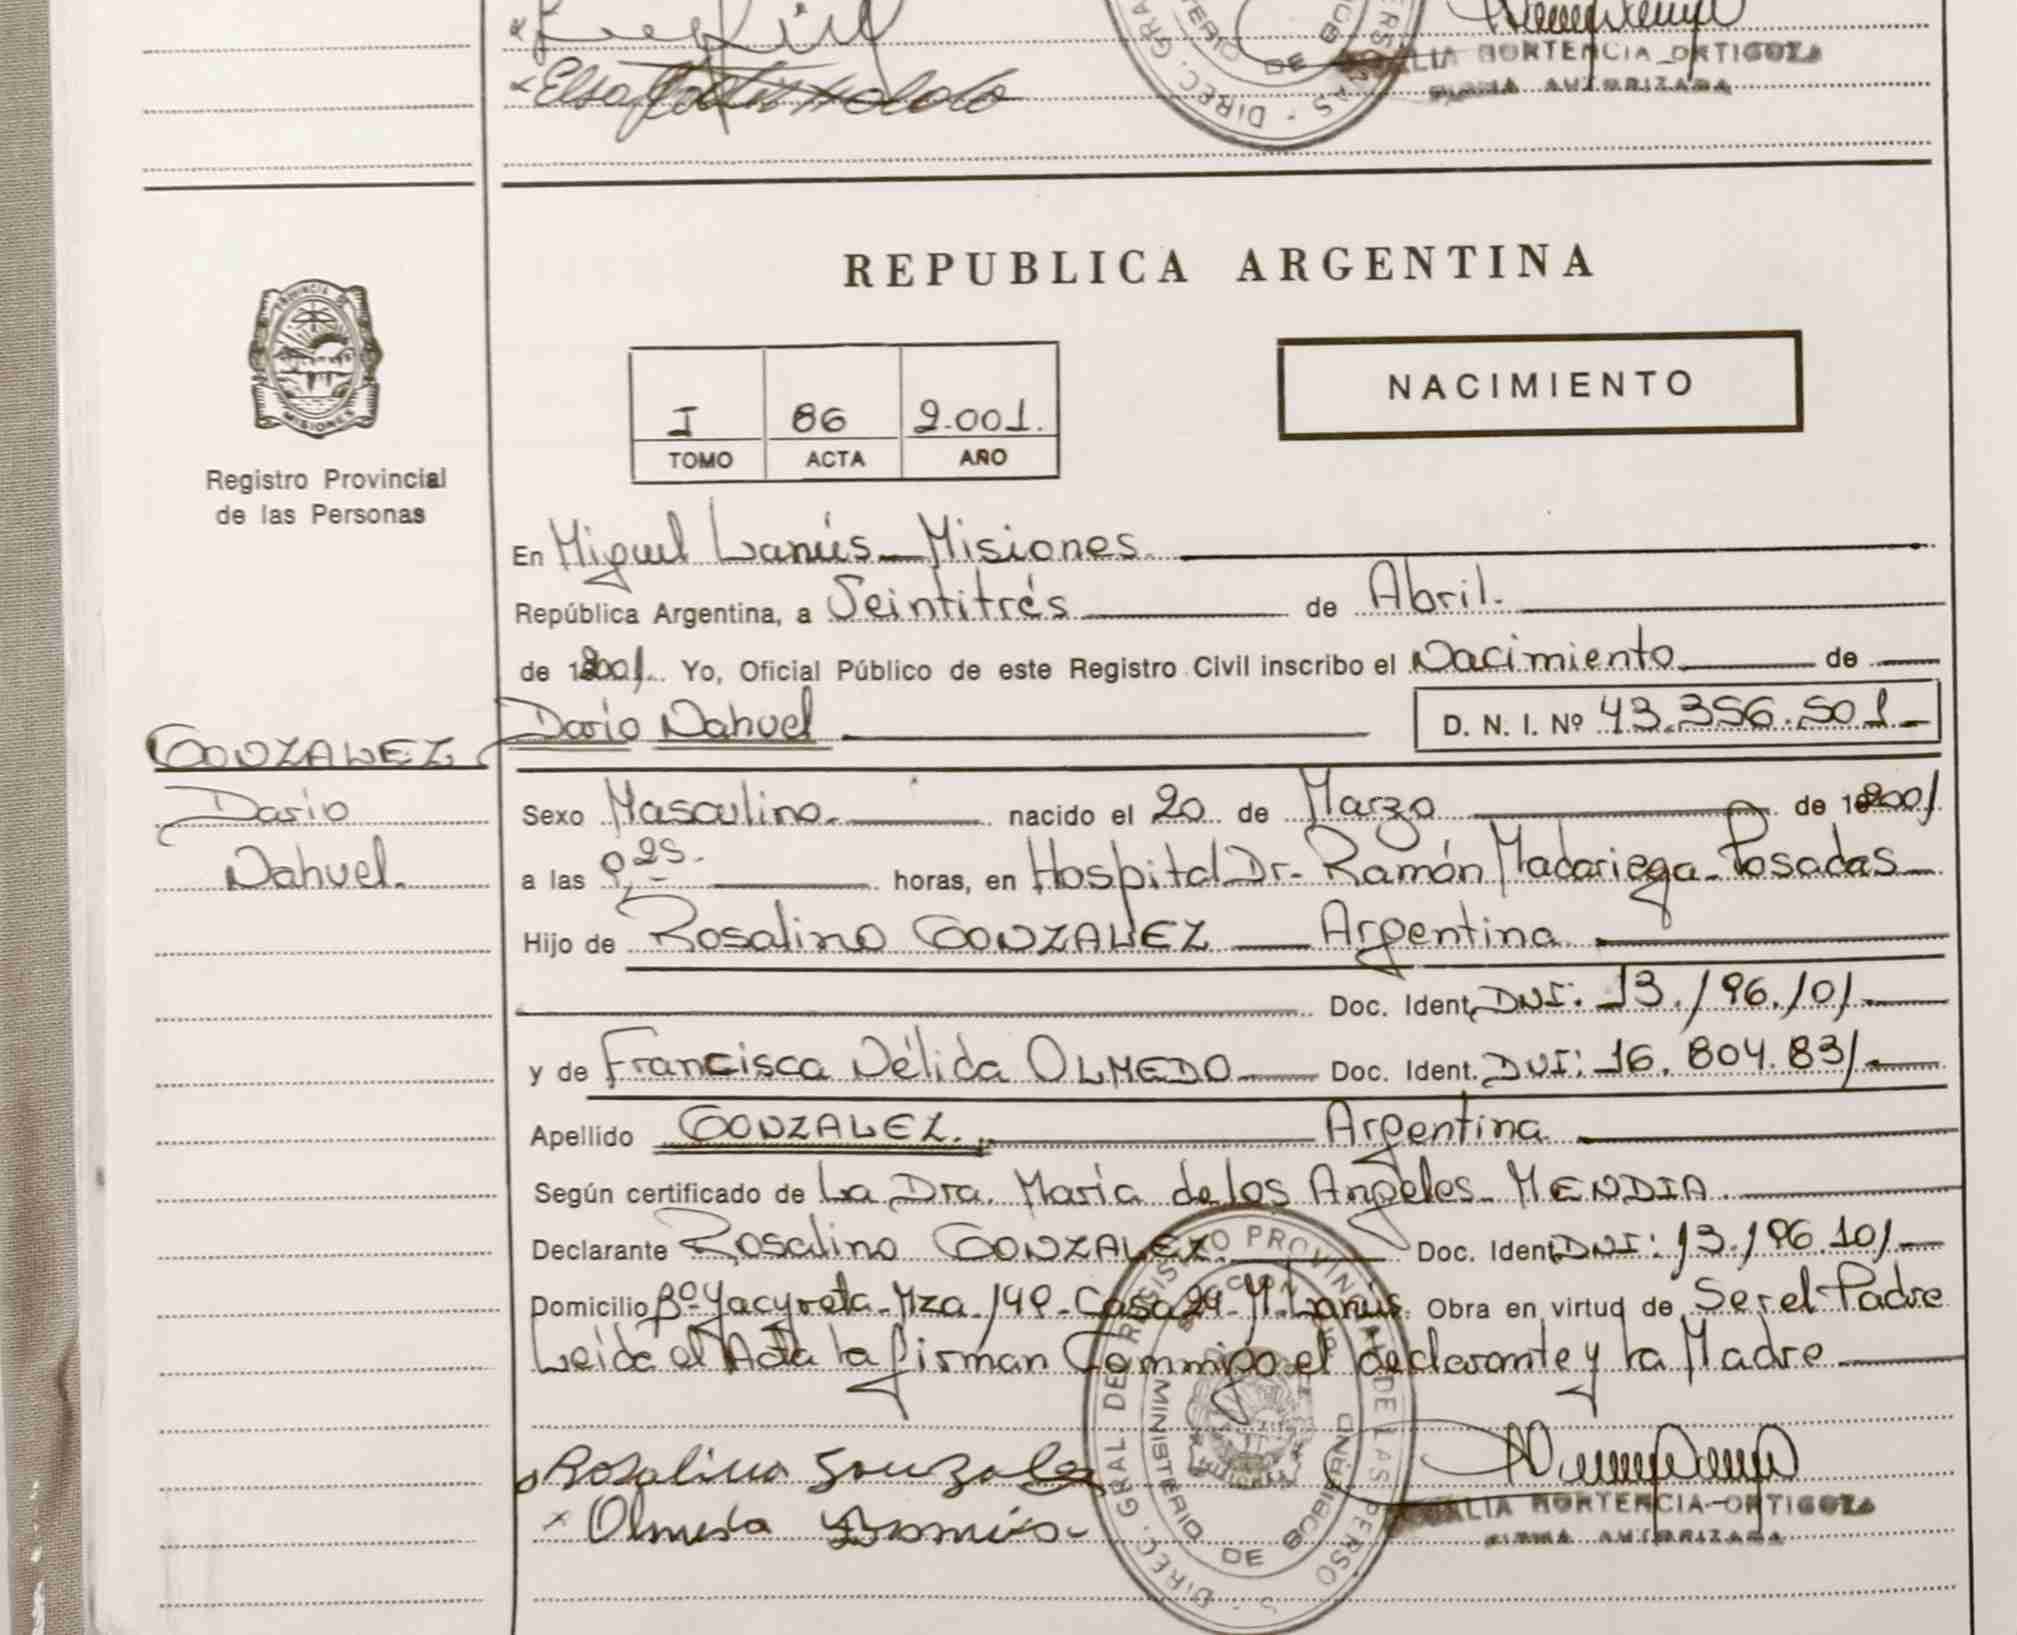 HORTENCIA ORTIGOZA
FIRMA AUTORIZADA
REPUBLICA ARGENTINA
PROVINCIA DE
MISIONES
Registro Provincial
de las Personas
I 86 2.001.
TOMO ACTA AÑO
NACIMIENTO
En Miguel Lanús - Misiones.
República Argentina, a Veintitrés de Abril.
de 2001. Yo, Oficial Público de este Registro Civil inscribo el Nacimiento de
GONZALEZ Dario Nahuel D. N. I. Nº 43.356.501
Dario
Nahuel.
Sexo Masculino. nacido el 20 de Marzo de 2001
a las 9,25. horas, en Hospital Dr. Ramón Madariega - Posadas
Hijo de Rosalino GONZALEZ Argentina
Doc. Ident. DNI: 13.196.101
y de Francisca Nélida OLMEDO Doc. Ident. DNI: 16.804.831.
Apellido GONZALEZ. Argentina
Según certificado de La Dra. María de los Angeles MENDIA.
Declarante Rosalino GONZALEZ. Doc. Ident. DNI: 13.196.101
Domicilio Bº Yacyreta - Mza 149 - Casa 24 - M. Lanús. Obra en virtud de Ser el Padre
Leída el Acta la firman Conmigo el declarante y la Madre
Rosalino Gonzalez
HORTENCIA ORTIGOZA
FIRMA AUTORIZADA
DIREC. GRAL. DEL REGISTRO PROVINCIAL DE LAS PERSO
MINISTERIO DE GOBIERNO